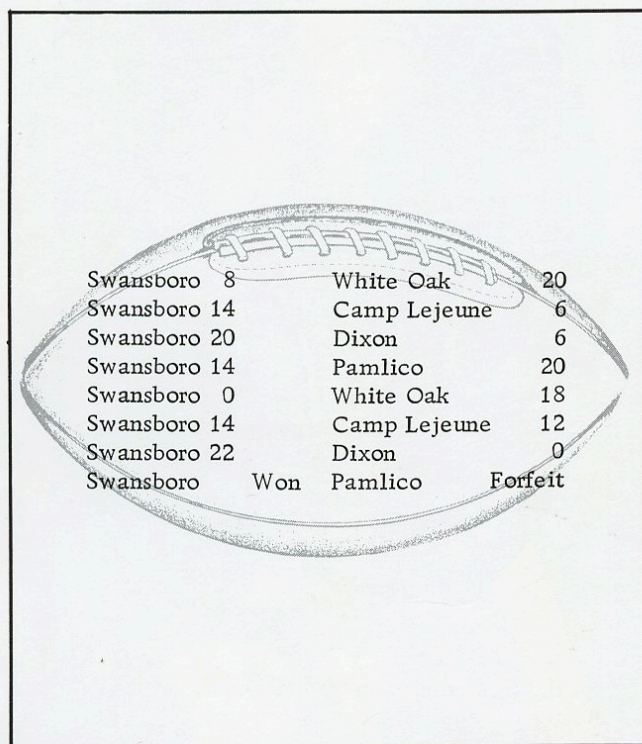 Swansboro 8 White Oak 20
Swansboro 14 Camp Lejeune 6
Swansboro 20 Dixon 6
Swansboro 14 Pamlico 20
Swansboro 0 White Oak 18
Swansboro 14 Camp Lejeune 12
Swansboro 22 Dixon 0
Swansboro Won Pamlico Forfeit